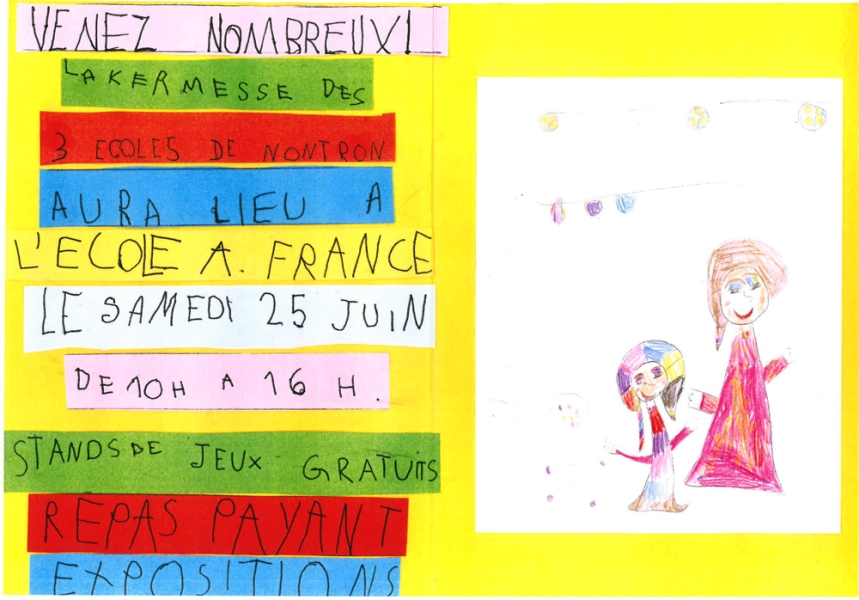 VENEZ NOMBREUX!
LA KERMESSE DES
3 ECOLES DE NONTRON
AURA LIEU A
L'ECOLE A. FRANCE
LE SAMEDI 25 JUIN
DE 10H A 16 H.
STANDS DE JEUX GRATUITS
REPAS PAYANT
EXPOSITIONS